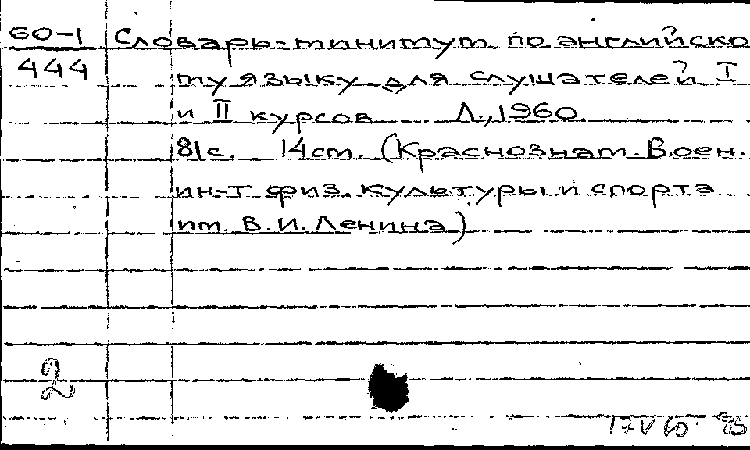 60-1 Словарь-минимум по английско
444 му языку для слушателей I
и II курсов Л., 1960
81с. 14см. (Краснознам. Воен.
ин-т физ. культуры и спорта
им. В.И. Ленина)
2
17 V 60